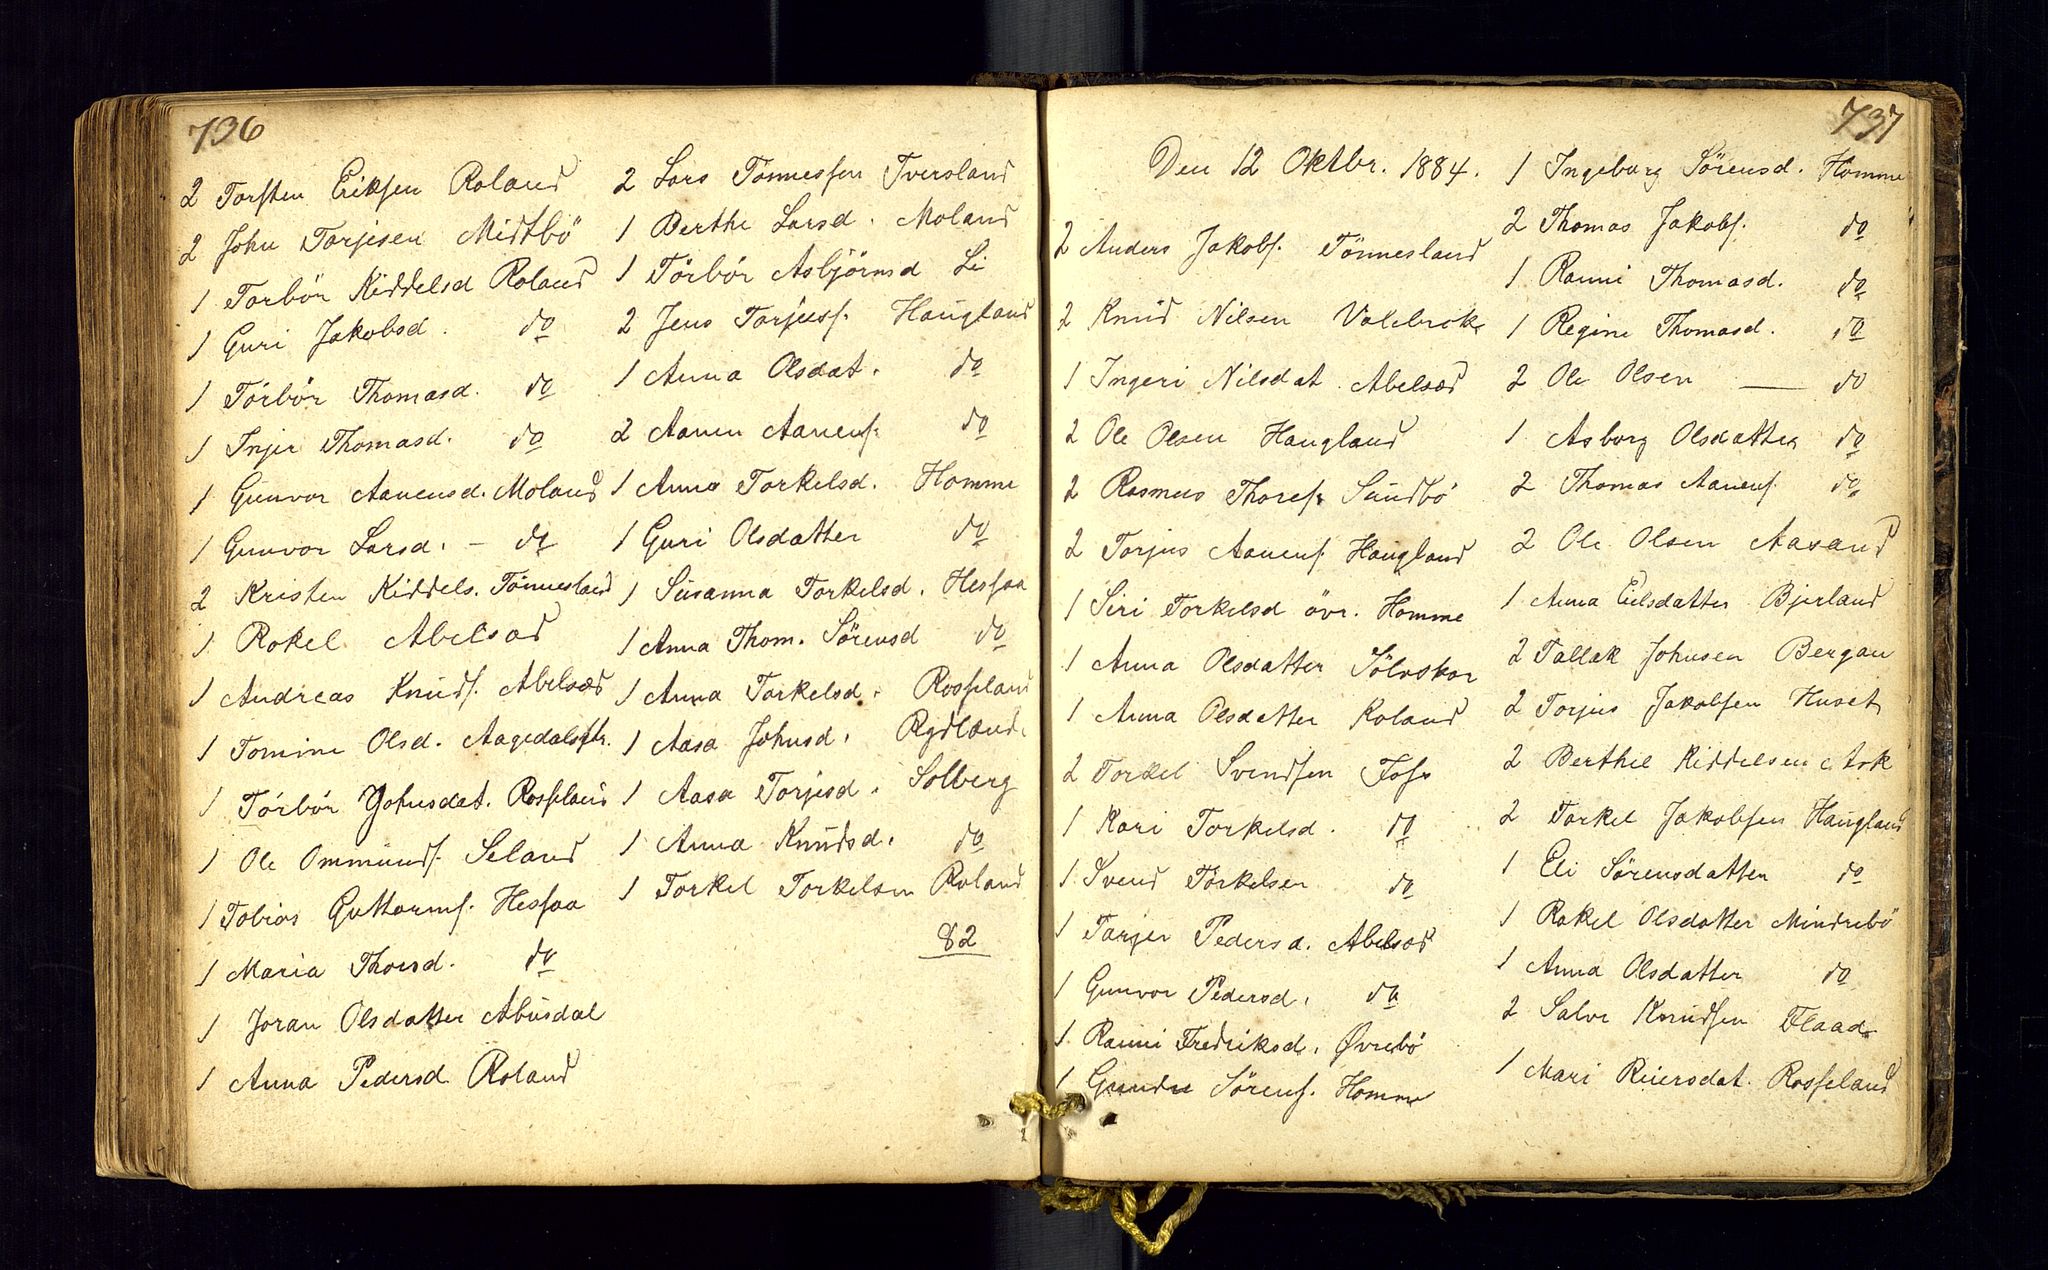 736
2 Torsten Eriksen Roland
2 John Torjesen Midtbö
1 Torbör Kiddelsd Roland
1 Guri Jakobsd. do
1 Törbör Thomasd. do
1 Injer Thomasd. do
1 Gunvor Aanensd. Moland
1 Gunvor Larsd. – do
2 Kristen Kiddels. Tönnesland
1 Rakel Abelsæd
1 Andreas Knuds. Abelsæd
1 Tomine Olsd. Aagedalsftr.
1 Törbör Johnsdat. Rosseland
1 Ole Ommunds. Seland
1 Tobias Guttorms. Hessaa
1 Maria Thorsd. do
1 Joran Olsdatter Abusdal
1 Anna Pedersd Roland
2 Lars Tönnessen Tversland
1 Berthe Larsd. Moland
1 Törbör Asbjörnsd Li
2 Jens Torjuss. Haugland
1 Anna Olsdat. do
2 Aanen Aanens. do
1 Anna Torkelsd. Homme
1 Guri Olsdatter do
1 Susanna Torkelsd. Hessaa
1 Anna Thom. Sörensd do
1 Anna Torkelsd. Rosseland
1 Aasa Johnsd. Rydland.
1 Aasa Torjesd. Solberg
1 Anna Knudsd. do
1 Torkel Torkelsen Roland
82
737
Den 12 Oktbr. 1884.
2 Anders Jakobs. Tönnesland
2 Knud Nilsen Valebrok
1 Ingeri Nilsdat. Abelsæd
2 Ole Olsen Haugland
2 Rasmus Thores. Sundbö
2 Torjus Aanens. Haugland
1 Siri Torkelsd övr. Homme
1 Anna Olsdatter Sölvskar
1 Anna Olsdatter Roland
2 Torkel Svendsen Foss
1 Kari Torkelsd. do
1 Svend Törkelsen do
1 Torjer Pedersd. Abelsæd
1 Gunvor Pedersd. do
1 Ranni Fredriksd. Øvrebö
1 Sörens. Homme
1 Ingeborg Sörensd. Homme
2 Thomas Jakobs. do
1 Ranni Thomasd. do
1 Regine Thomasd. do
2 Ole Olsen — do
1 Asborg Olsdatter do
2 Thomas Aanens. do
2 Ole Olsen Aasand
1 Anna Eilsdatter Bjerland
2 Tallak Johnsen Bergan
2 Torjus Jakobsen Huset
2 Berthel Kiddelsen Ask
2 Torkel Jakobsen Haugland
1 Eli Sörensdatter do
1 Rakel Olsdatter Mindrebö
1 Anna Olsdatter do
2 Salve Knudsen Flaad
1 Mari Reiersdat. Rosseland